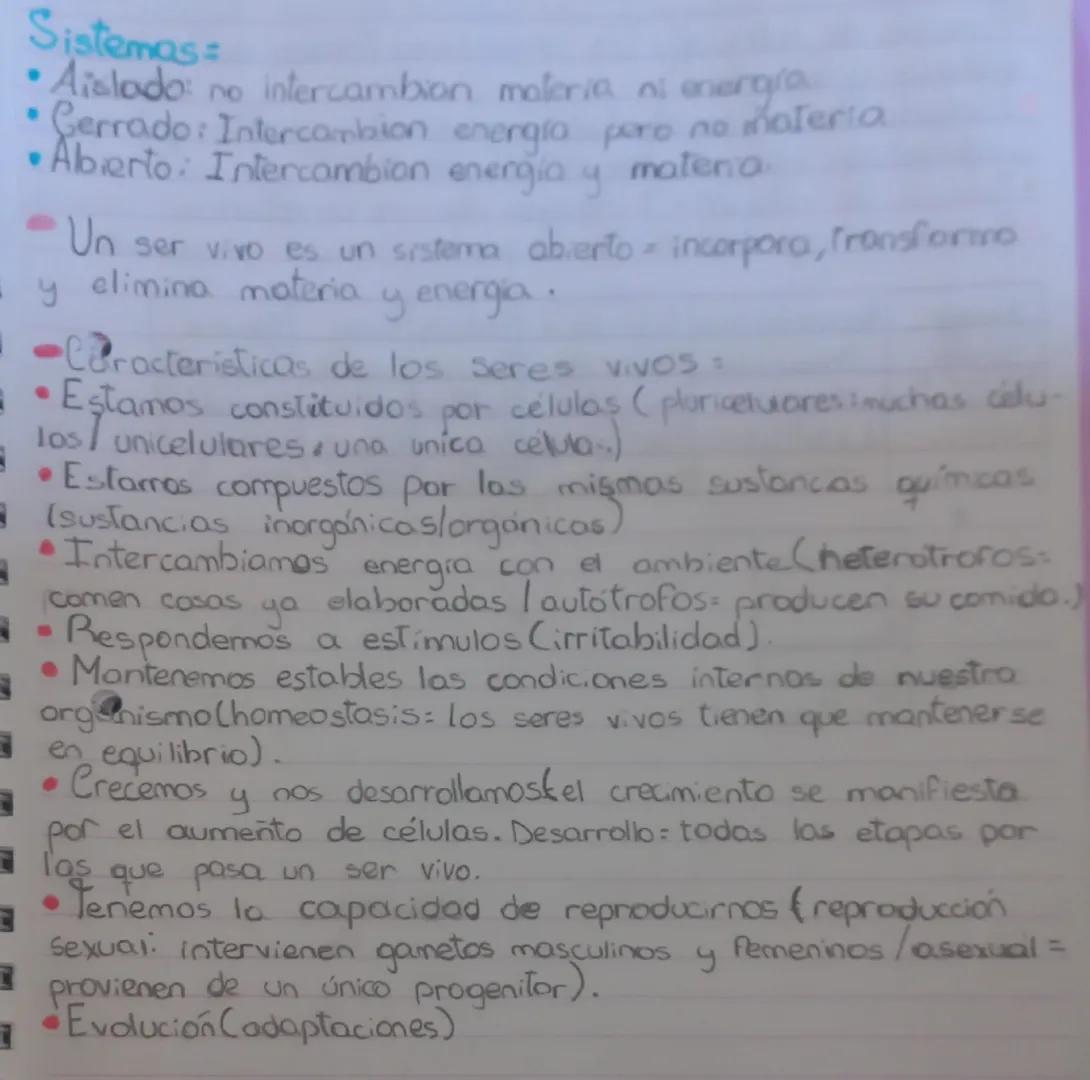 Sistemas=
• Aislado: no intercambian materia ni energía
• Cerrado: Intercambian energía pero no materia
• Abierto: Intercambian energía y materia.
- Un ser vivo es un sistema abierto = incorpora, transforma
y elimina materia y energía.
- Características de los seres vivos =
• Estamos constituidos por células (pluricelulares: muchas célu-
las / unicelulares: una unica célula.)
• Estamos compuestos por las mismas sustancas químicas
(sustancias inorgánicas/orgánicas)
• Intercambiamos energía con el ambiente (heterotrofos=
comen cosas ya elaboradas / autótrofos= producen su comida.)
• Respondemos a estímulos (irritabilidad).
• Mantenemos estables las condiciones internas de nuestro
organismo (homeostasis= los seres vivos tienen que mantenerse
en equilibrio).
• Crecemos y nos desarrollamos (el crecimiento se manifiesta
por el aumento de células. Desarrollo= todas las etapas por
las que pasa un ser vivo.
• Tenemos la capacidad de reproducirnos (reproducción
sexual: intervienen gametos masculinos y femeninos / asexual =
provienen de un único progenitor).
• Evolución (adaptaciones)